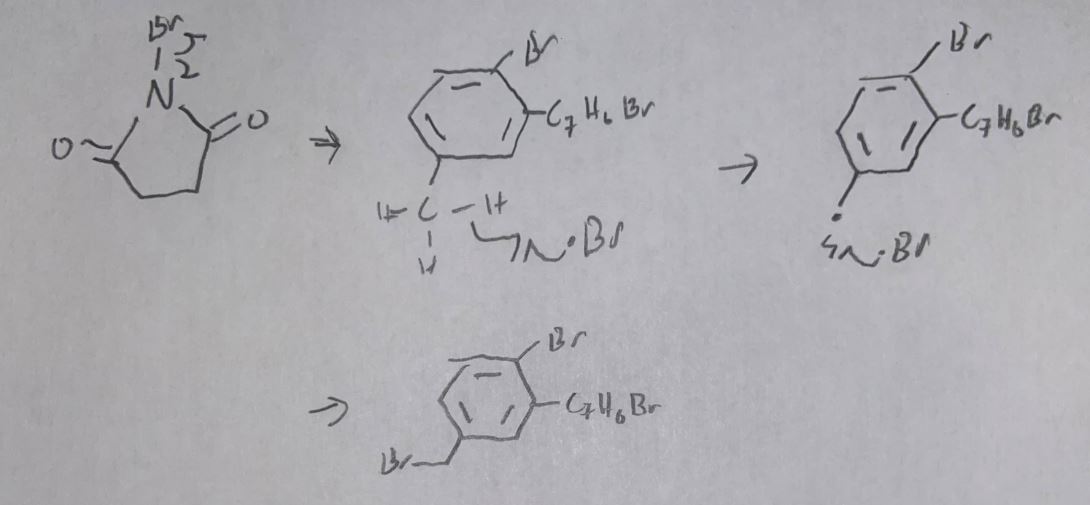 Br
N
O
O
Br
C7H6Br
H-C-H
H
Br
Br
C7H6Br
Br
Br
C7H6Br
Br